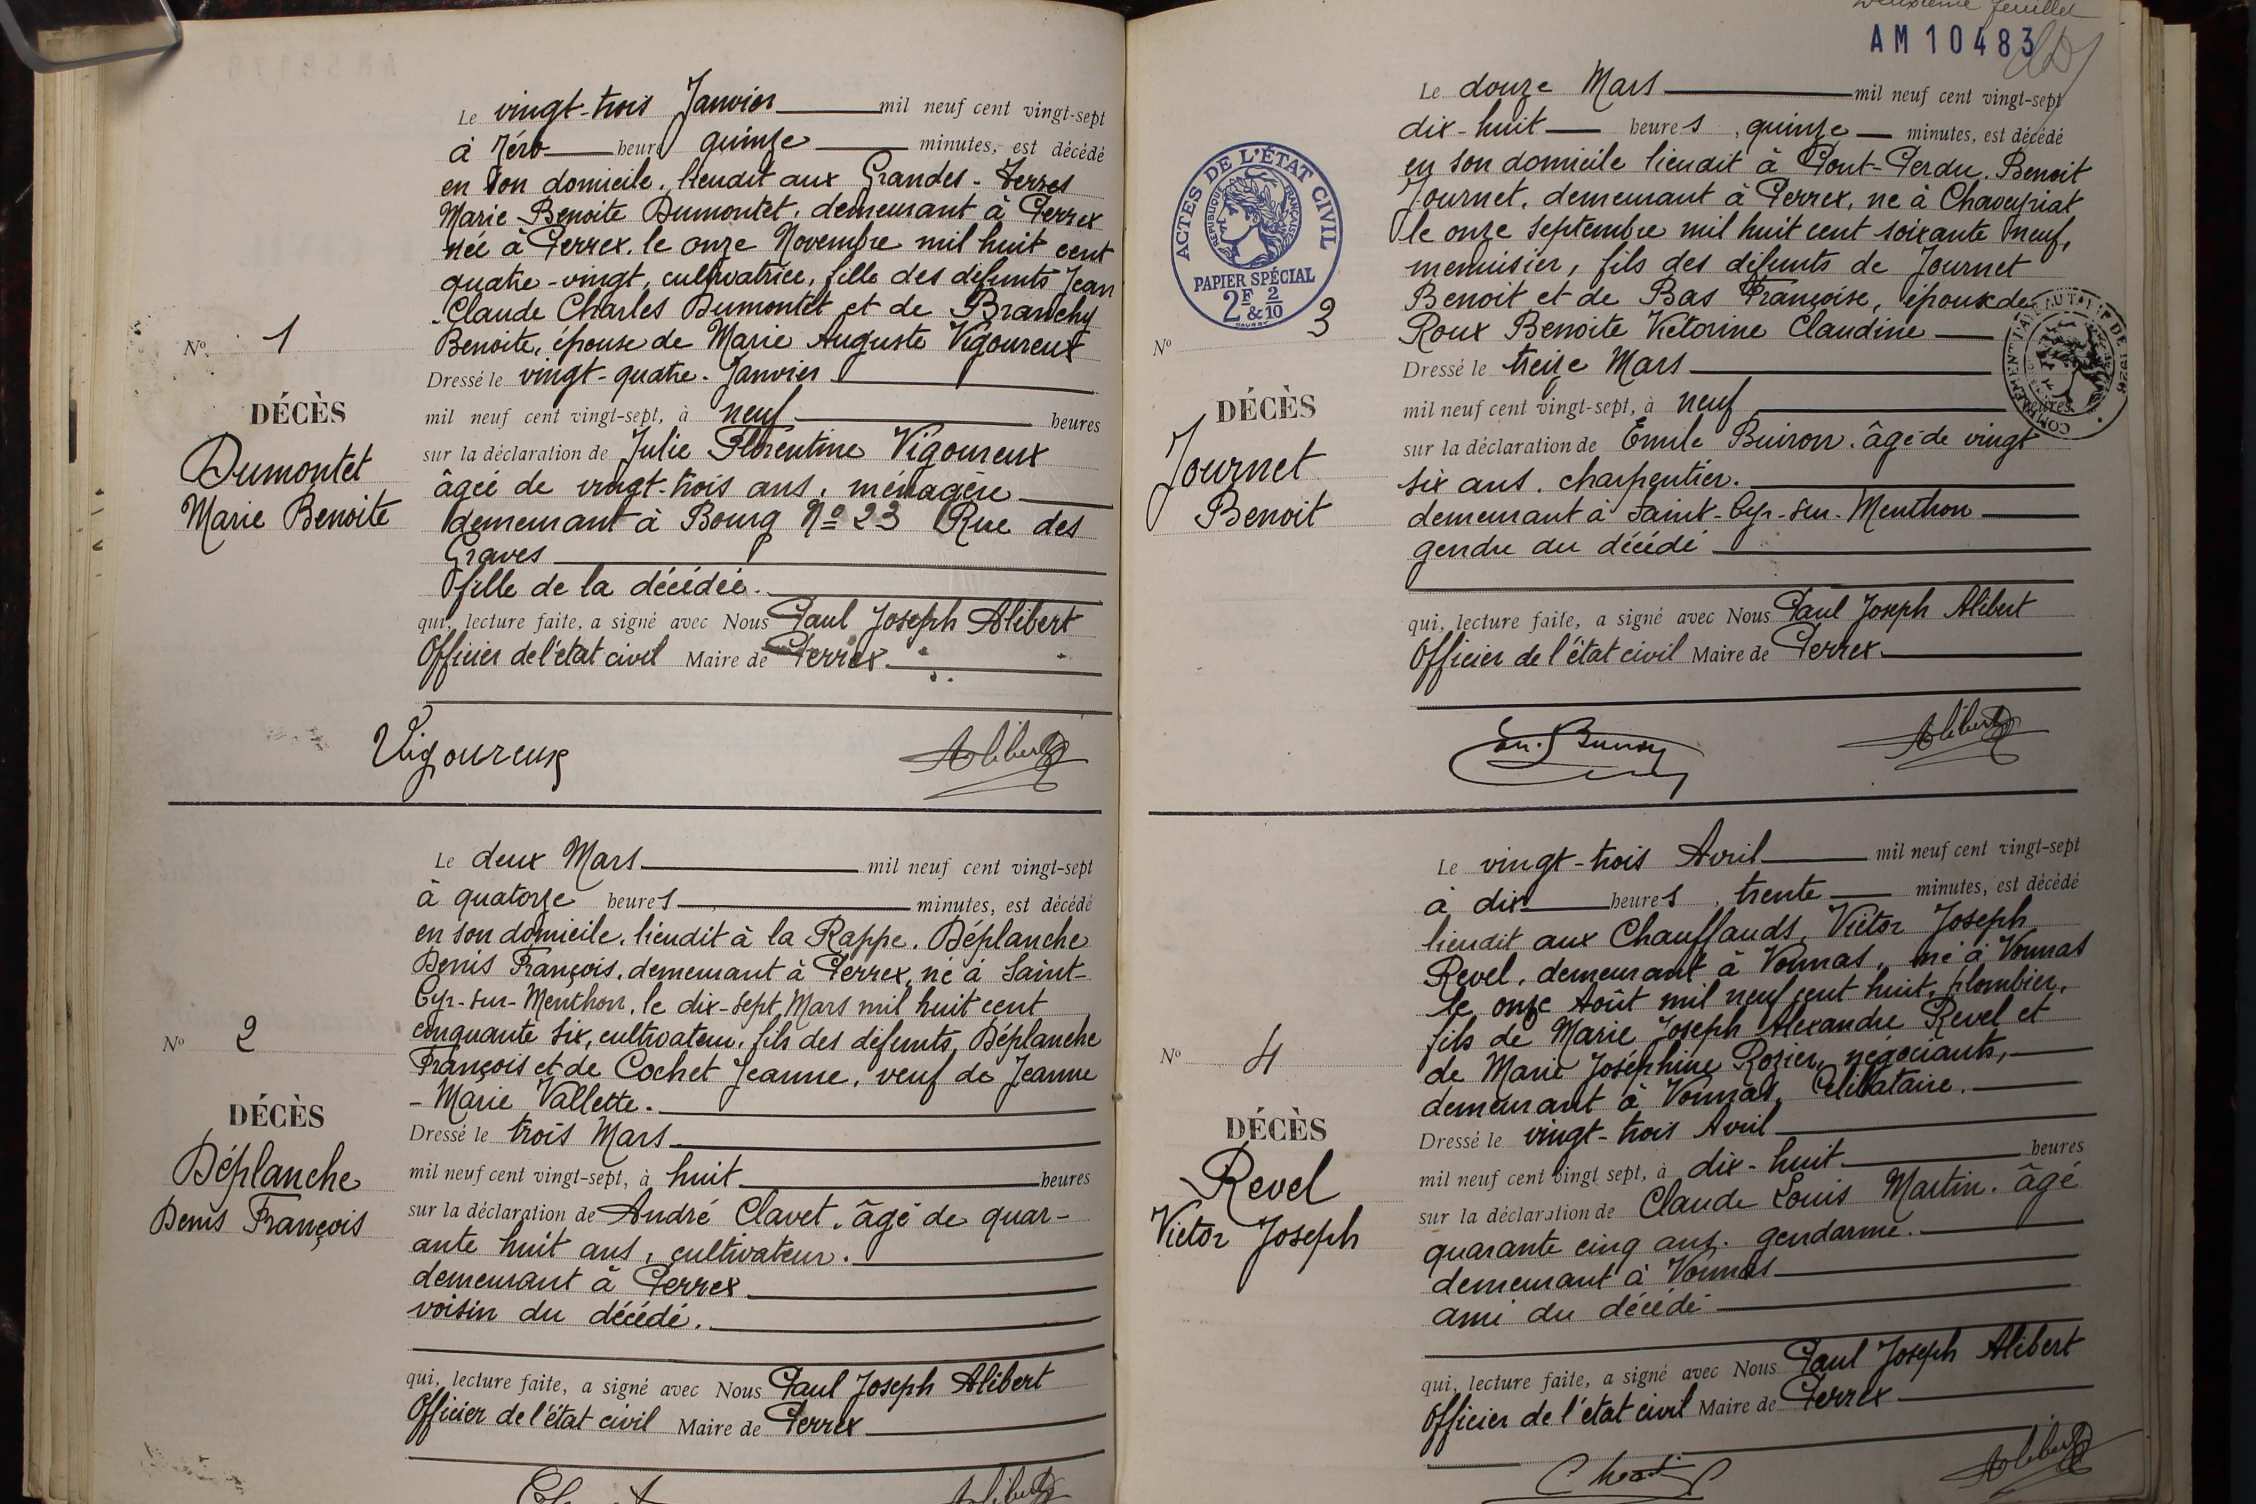 Le vingt-trois Janvier mil neuf cent vingt-sept
à zéro heure quinze minutes, est décédé
en son domicile, lieudit aux Grandes-Terres
Marie Benoite Dumontet, demeurant à Perrex
née à Perrex, le onze Novembre mil huit cent
quatre-vingt, cultivatrice, fille des défunts Jean
Claude Charles Dumontet et de Branchy
Benoite, épouse de Marie Auguste Vigoureux
Nº 1
DÉCÈS
Dumontet
Marie Benoite
Dressé le vingt-quatre Janvier
mil neuf cent vingt-sept, à neuf heures
sur la déclaration de Julie Florentine Vigoureux
âgée de vingt-trois ans, ménagère
demeurant à Bourg Nº 23 Rue des
Graves
fille de la décédée.
qui, lecture faite, a signé avec Nous Paul Joseph Alibert
Officier de l'état civil Maire de Perrex
Vigoureux Alibert
Le deux Mars mil neuf cent vingt-sept
à quatorze heures minutes, est décédé
en son domicile, lieudit à la Rappe, Déplanche
Denis François, demeurant à Perrex, né à Saint-
Cyr-sur-Menthon, le dix-sept Mars mil huit cent
cinquante six, cultivateur, fils des défunts Déplanche
François et de Cochet Jeanne, veuf de Jeanne
-Marie Vallette.
Nº 2
DÉCÈS
Déplanche
Denis François
Dressé le trois Mars
mil neuf cent vingt-sept, à huit heures
sur la déclaration de André Clavet, âgé de quar-
ante huit ans, cultivateur.
demeurant à Perrex
voisin du décédé.
qui, lecture faite, a signé avec Nous Paul Joseph Alibert
Officier de l'état civil Maire de Perrex
Alibert
Deuxième feuillet
AM 10483
Le douze Mars mil neuf cent vingt-sept
dix-huit heures, quinze minutes, est décédé
en son domicile lieudit à Pont-Perdu, Benoit
Journet, demeurant à Perrex, né à Chaveyriat
le onze septembre mil huit cent soixante neuf,
menuisier, fils des défunts de Journet
Benoit et de Bas Françoise, époux de
Roux Benoite Victorine Claudine
ACTES DE L'ÉTAT CIVIL
RÉPUBLIQUE FRANÇAISE
PAPIER SPÉCIAL
2F & 2/10
Nº 3
DÉCÈS
Journet
Benoit
Dressé le treize Mars
mil neuf cent vingt-sept, à neuf heures
sur la déclaration de Emile Buiron, âgé de vingt
six ans, charpentier.
demeurant à Saint-Cyr-sur-Menthon
gendre du décédé
qui, lecture faite, a signé avec Nous Paul Joseph Alibert
Officier de l'état civil Maire de Perrex
Alibert
Le vingt-trois Avril mil neuf cent vingt-sept
à dix heures, trente minutes, est décédé
lieudit aux Chauffauds, Victor Joseph
Revel, demeurant à Vonnas, né à Vonnas
le onze Août mil neuf cent huit, plombier,
fils de Marie Joseph Alexandre Revel et
de Marie Joséphine Rozier, négociants,
demeurant à Vonnas, Célibataire.
Nº 4
DÉCÈS
Revel
Victor Joseph
Dressé le vingt-trois Avril
mil neuf cent vingt sept, à dix-huit heures
sur la déclaration de Claude Louis Martin, âgé
quarante cinq ans, gendarme.
demeurant à Vonnas
ami du décédé
qui, lecture faite, a signé avec Nous Paul Joseph Alibert
Officier de l'état civil Maire de Perrex
Alibert